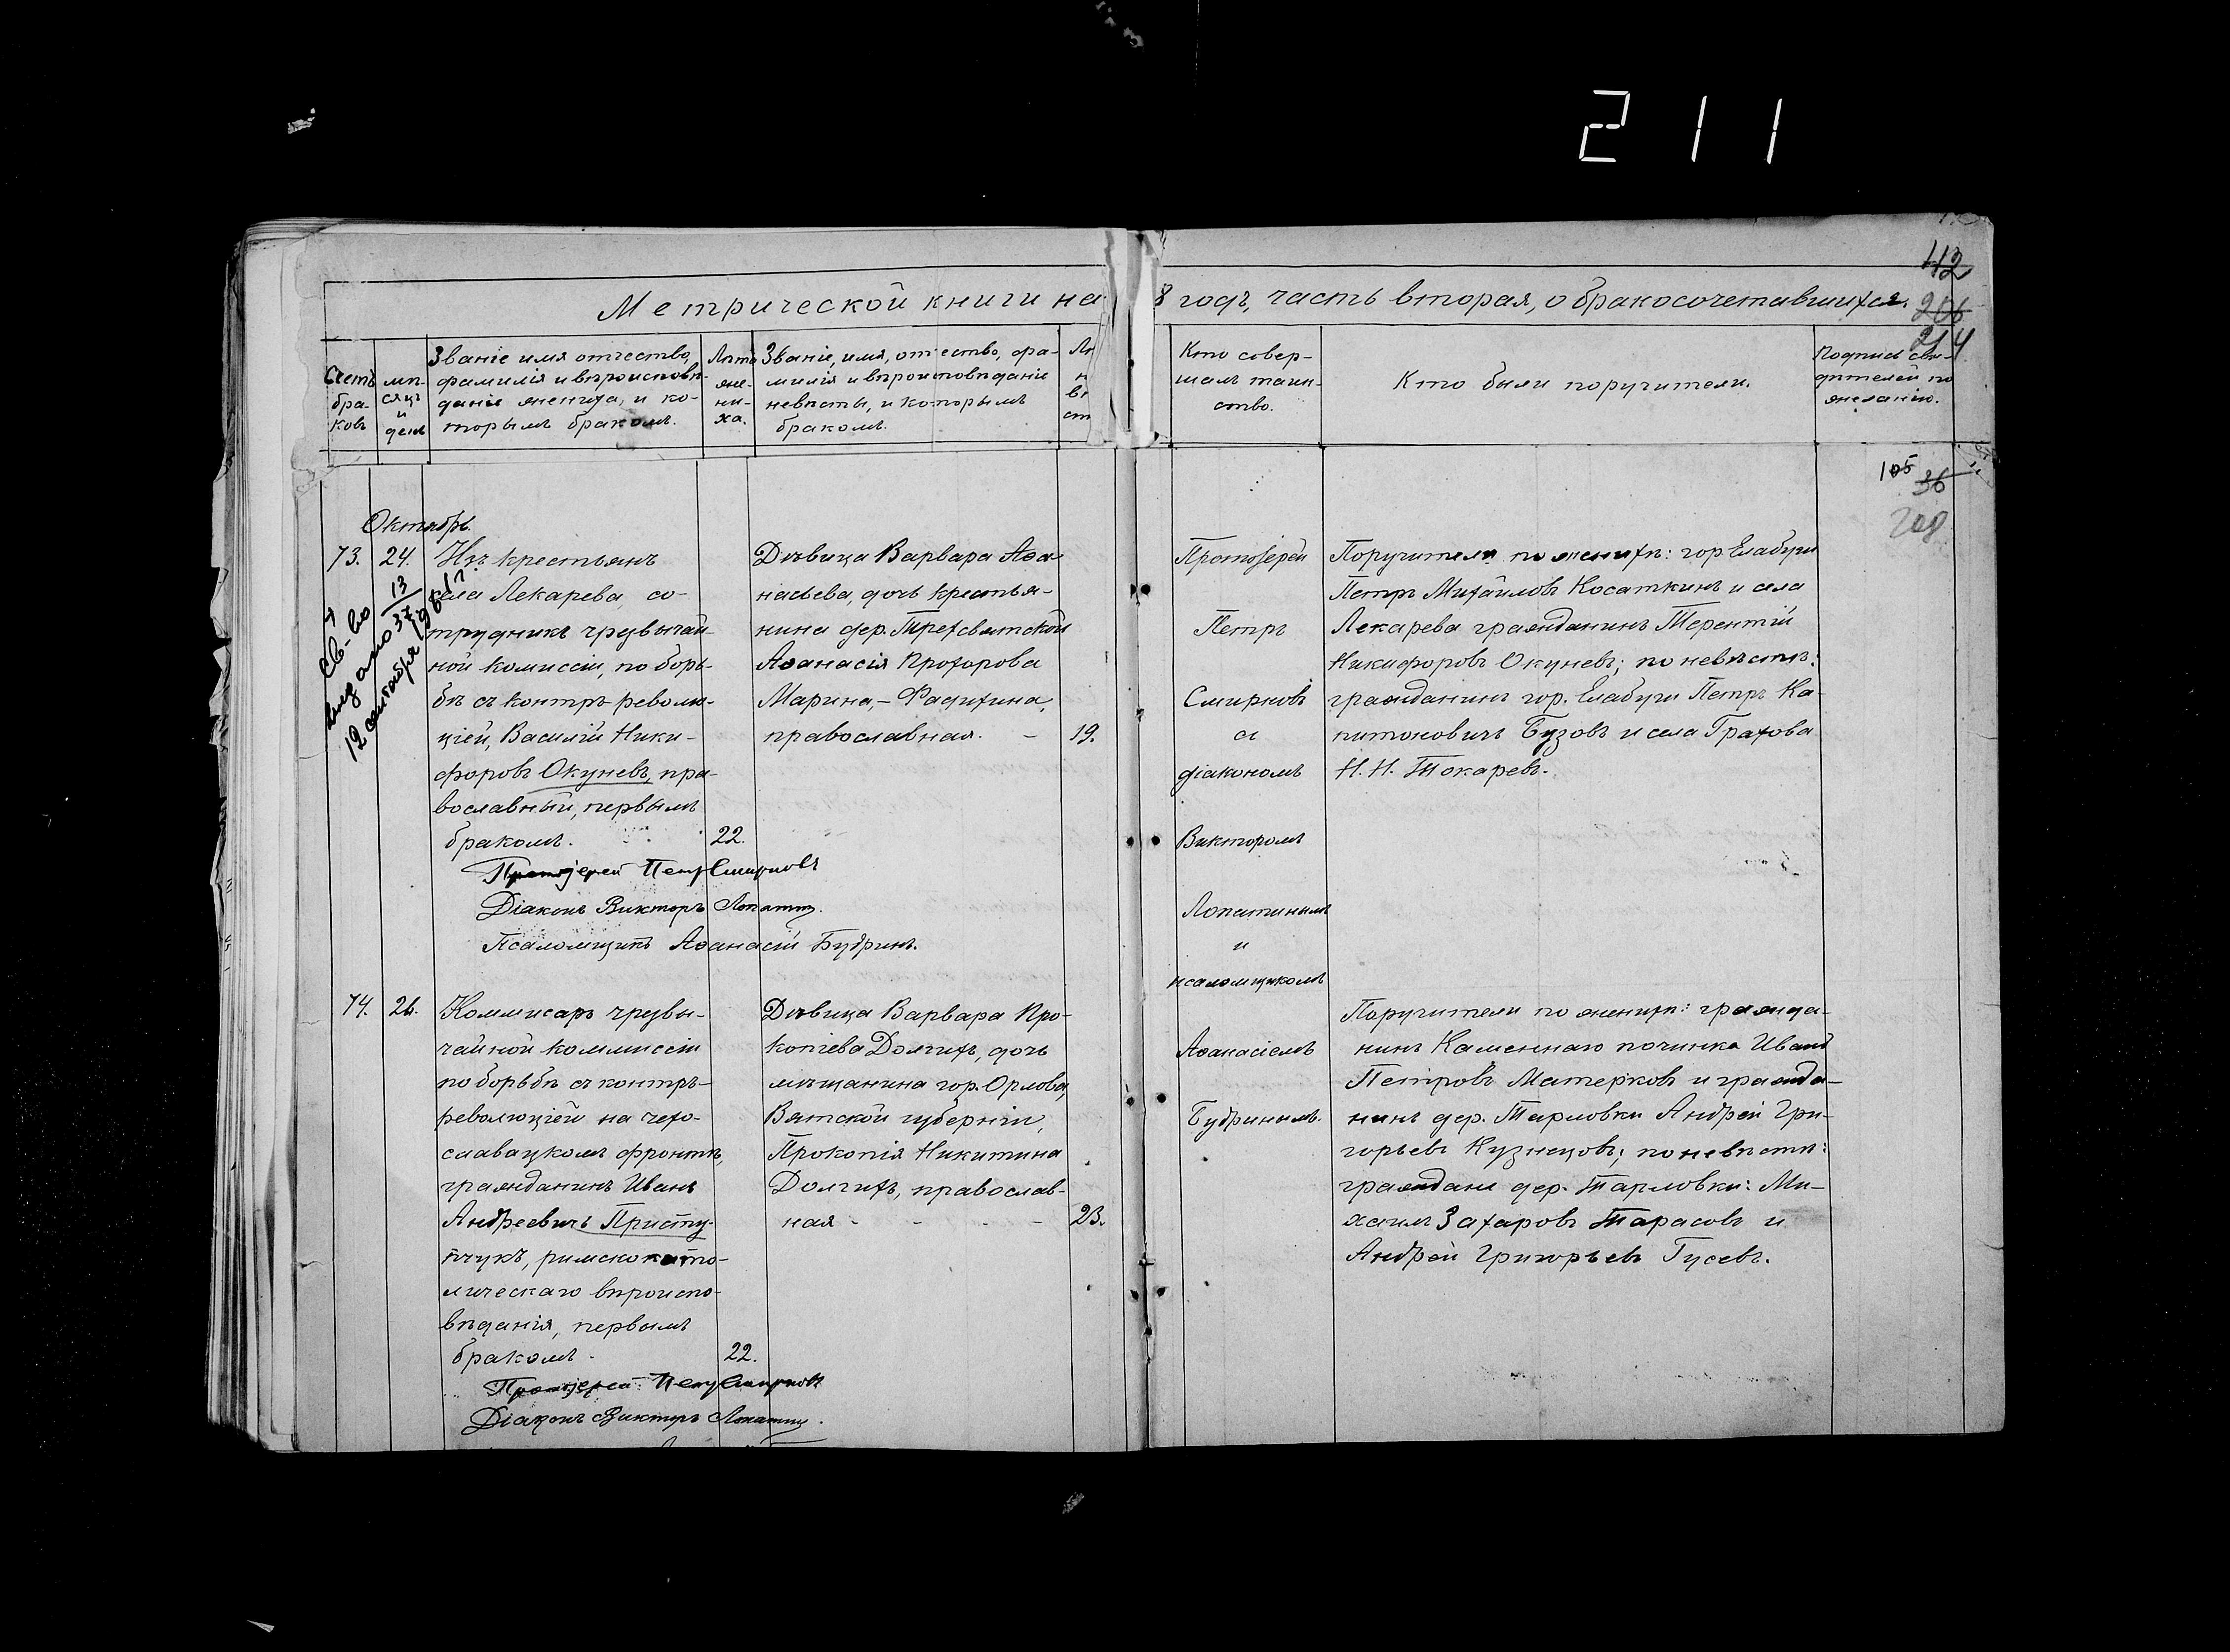 211
42
206
214
Метрической книги на 8 годъ, часть вторая, о бракосочетавшихся.
Счетъ браковъ
мѣсяцъ и день
Званіе имя отчество,
фамилія и вѣроисповѣ-
даніе жениха, и ко-
торымъ бракомъ.
Лѣта
же-
ни-
ха.
Званіе, имя, отчество, фа-
милія и вѣроисповѣданіе
невѣсты, и которымъ
бракомъ.
Кто совер-
шалъ таин-
ство.
Кто были поручители.
Подписи сви-
дѣтелей по
желанію.
105
36
208
Октябрь.
73. 24.
13
37
Св-во
12 сентября
Изъ крестьянъ
села Лекарева, со-
трудникъ чрезвычай-
ной комиссіи, по борь-
бѣ съ контръ-револю-
ціей, Василій Ники-
форовъ Окуневъ, пра-
вославный, первымъ
бракомъ. 22.
Дѣвица Варвара Аѳа-
насьева, дочь крестья-
нина дер. Трехсвятской
Аѳанасія Прохорова
Марина, – Фадихина,
православная. – 19.
Протоіерей
Петръ
Смирновъ
съ
діакономъ
Викторомъ
Лопатинымъ
и
псаломщикомъ
Аѳанасіемъ
Будринымъ.
Поручители по женихѣ: гор Елабуги
Петръ Михайловъ Косаткинъ и села
Лекарева гражданинъ Терентій
Никифоровъ Окуневъ; по невѣстѣ:
гражданинъ гор. Елабуги Петръ Ка-
питоновичъ Бузовъ и села Грахова
Н. Н. Токаревъ.
Протоіерей Петръ Смирновъ
Діаконъ Викторъ Лопатинъ.
Псаломщикъ Аѳанасій Будринъ.
74. 26.
Коммисаръ чрезвы-
чайной коммиссіи
по борьбѣ съ контръ-
революціей на чехо-
славацкомъ фронтѣ,
гражданинъ Иванъ
Андреевичъ Присту-
пчукъ, римско като-
лическаго вѣроиспо-
вѣданія, первымъ
бракомъ. 22.
Дѣвица Варвара Про-
копіева Долгихъ, дочь
мѣщанина гор. Орлова,
Вятской губерніи,
Прокопія Никитина
Долгихъ, православ-
ная - - - - 23.
Поручители по женихѣ: гражда-
нинъ Каменнаго починка Иванъ
Петровъ Матерковъ и гражда-
нинъ дер. Тарловки Андрей Гри-
горьевъ Кузнецовъ; по невѣстѣ:
граждане дер. Тарловки: Ми-
хаилъ Захаровъ Тарасовъ и
Андрей Григорьевъ Гусевъ.
Протоіерей Петръ Смирновъ
Діаконъ Викторъ Лопатинъ.